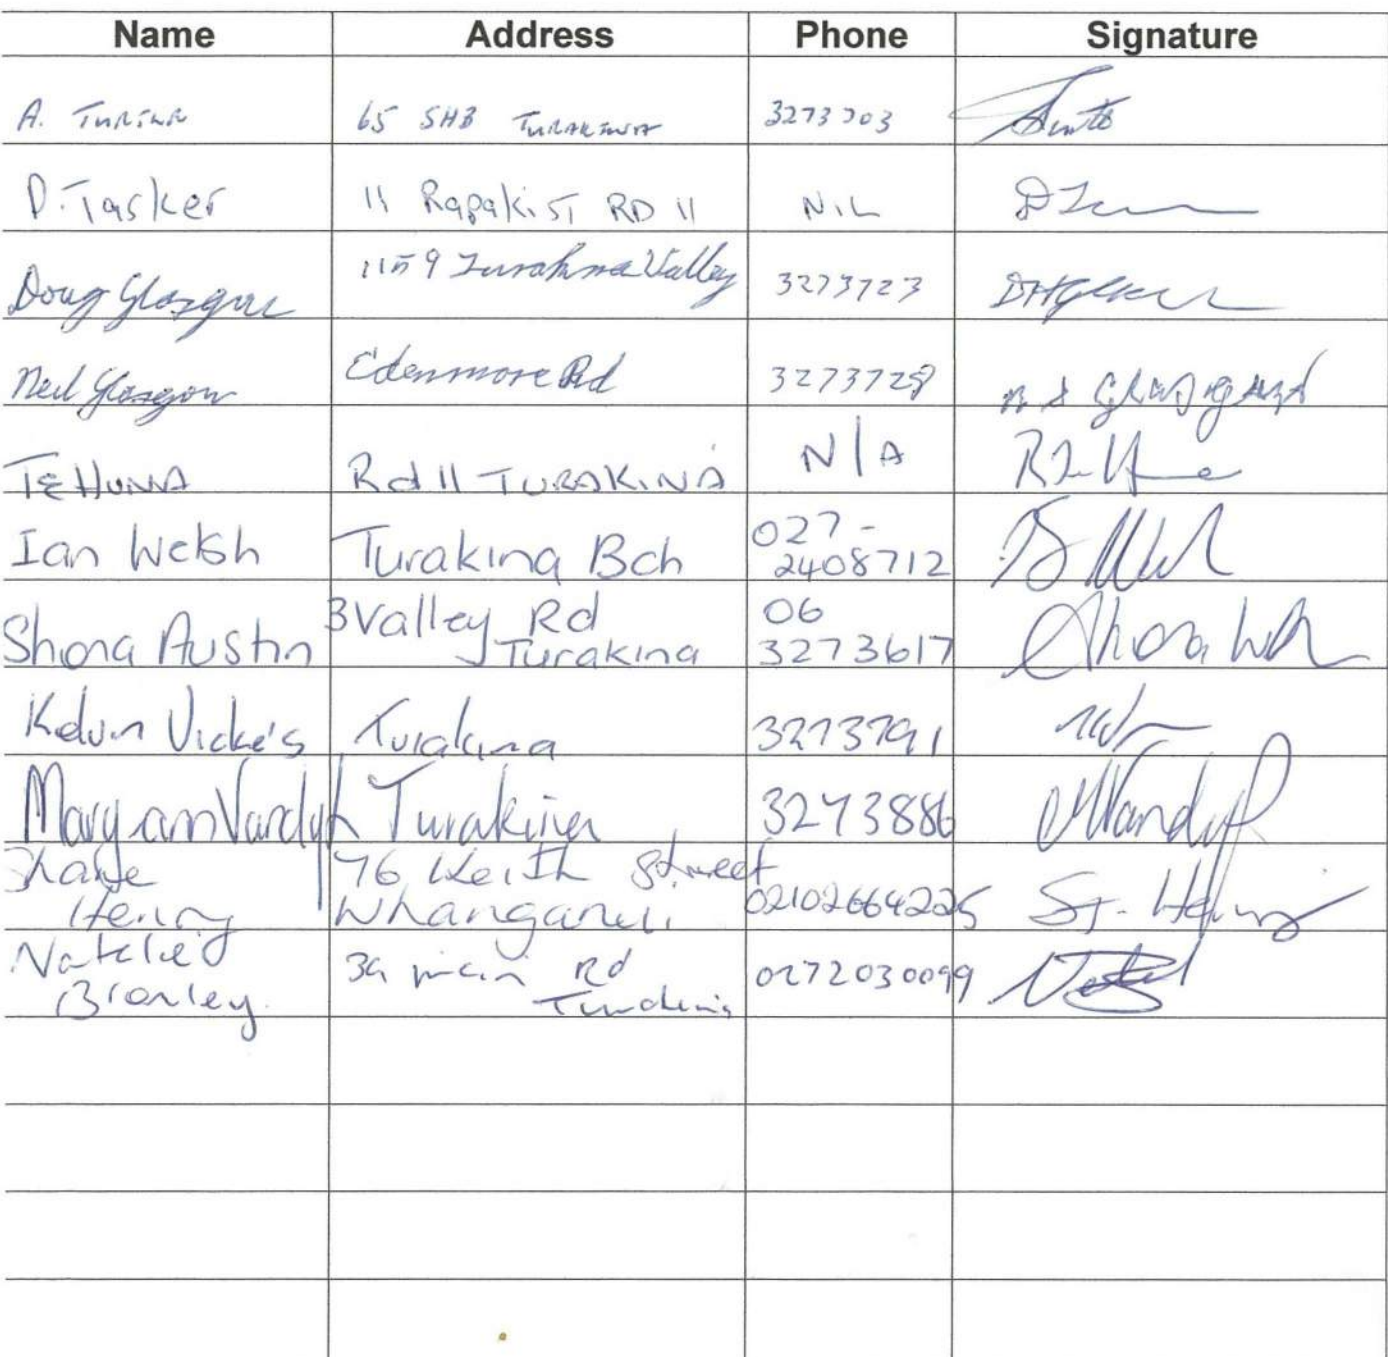 Name Address Phone Signature
A. 65 SH3 TURAKINA 3273703
D. Tasker 11 Rapaki ST RD 11 NIL
Doug Glasgow 1159 Turakina Valley 3273723
Neil Glasgow Edenmore Rd 3273728
TEHUNA Rd 11 TURAKINA N/A
Ian Welsh Turakina Bch 027-
2408712
Shona Austin 3 Valley Rd 06
Turakina 3273617
Kelvin Vickers Turakina 3273791
Maryann Vandyk Turakina 3273886
Shane 76 Keith Street
Henry Whanganui 02102664225 ST. Henry
Natalie 3a main Rd 0272030099
Bronley Turakina